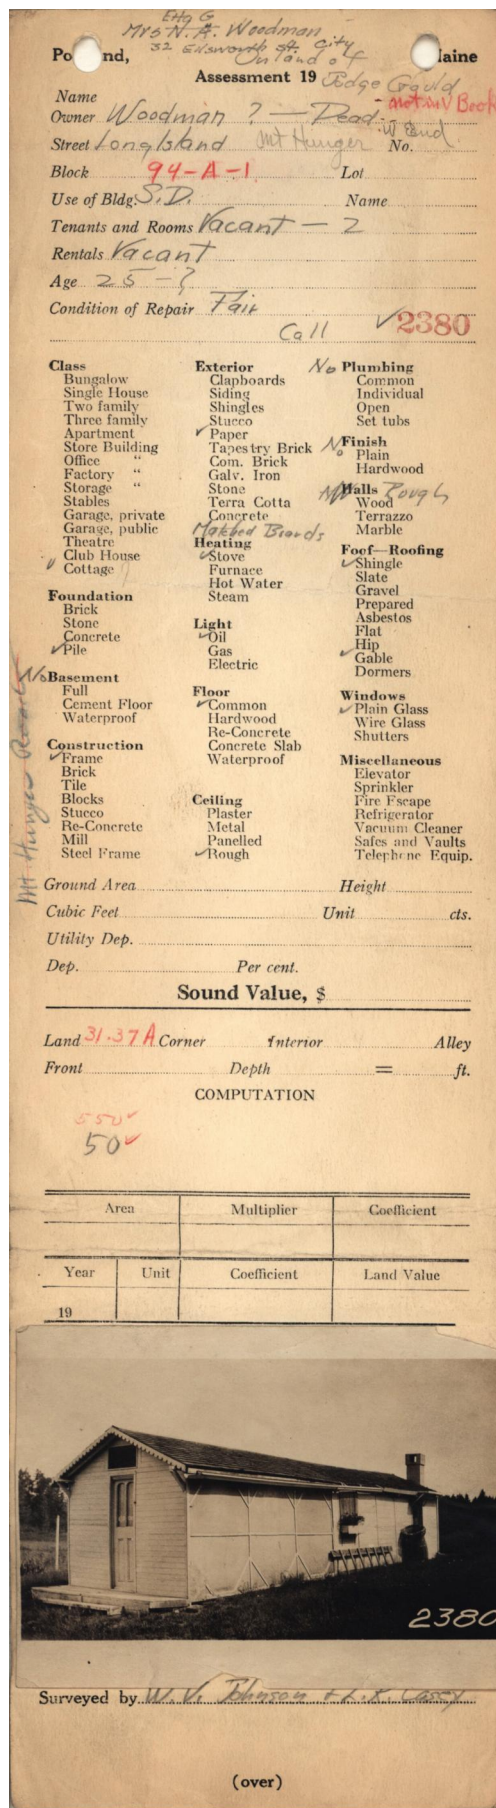 Etta G
Mrs N. A. Woodman
32 Ellsworth St. City
On land of
Portland, Maine
Assessment 19 Judge Gould
Name - not in V Book
Owner Woodman ? — Dead - W End
Street Long Island Mt Hunger No.
Block 94-A-1 Lot
Use of Bldg. S.D. Name
Tenants and Rooms Vacant — 2
Rentals Vacant
Age 25 - ?
Condition of Repair Fair
Call ✓2380
Class
Bungalow
Single House
Two family
Three family
Apartment
Store Building
Office "
Factory "
Storage "
Stables
Garage, private
Garage, public
Theatre
Club House
✓ Cottage
Foundation
Brick
Stone
Concrete
✓ Pile
No Basement
Full
Cement Floor
Waterproof
Construction
✓ Frame
Brick
Tile
Blocks
Stucco
Re-Concrete
Mill
Steel Frame
Mt Hunger Road
Exterior
Clapboards
Siding
Shingles
Stucco
✓ Paper
Tapestry Brick
Com. Brick
Galv. Iron
Stone
Terra Cotta
Concrete
Matched Boards
Heating
✓ Stove
Furnace
Hot Water
Steam
Light
✓ Oil
Gas
Electric
Floor
✓ Common
Hardwood
Re-Concrete
Concrete Slab
Waterproof
Ceiling
Plaster
Metal
Panelled
✓ Rough
No Plumbing
Common
Individual
Open
Set tubs
No Finish
Plain
Hardwood
Walls Rough
Wood
Terrazzo
Marble
Foof—Roofing
✓ Shingle
Slate
Gravel
Prepared
Asbestos
Flat
Hip
✓ Gable
Dormers
Windows
✓ Plain Glass
Wire Glass
Shutters
Miscellaneous
Elevator
Sprinkler
Fire Escape
Refrigerator
Vacuum Cleaner
Safes and Vaults
Telephone Equip.
Ground Area Height
Cubic Feet Unit cts.
Utility Dep.
Dep. Per cent.
Sound Value, $
Land 31.37 A Corner Interior Alley
Front Depth = ft.
COMPUTATION
550 ✓
50 ✓
Area Multiplier Coefficient
Year Unit Coefficient Land Value
19
2380
Surveyed by W. V. Johnson + L. K. Casey
(over)